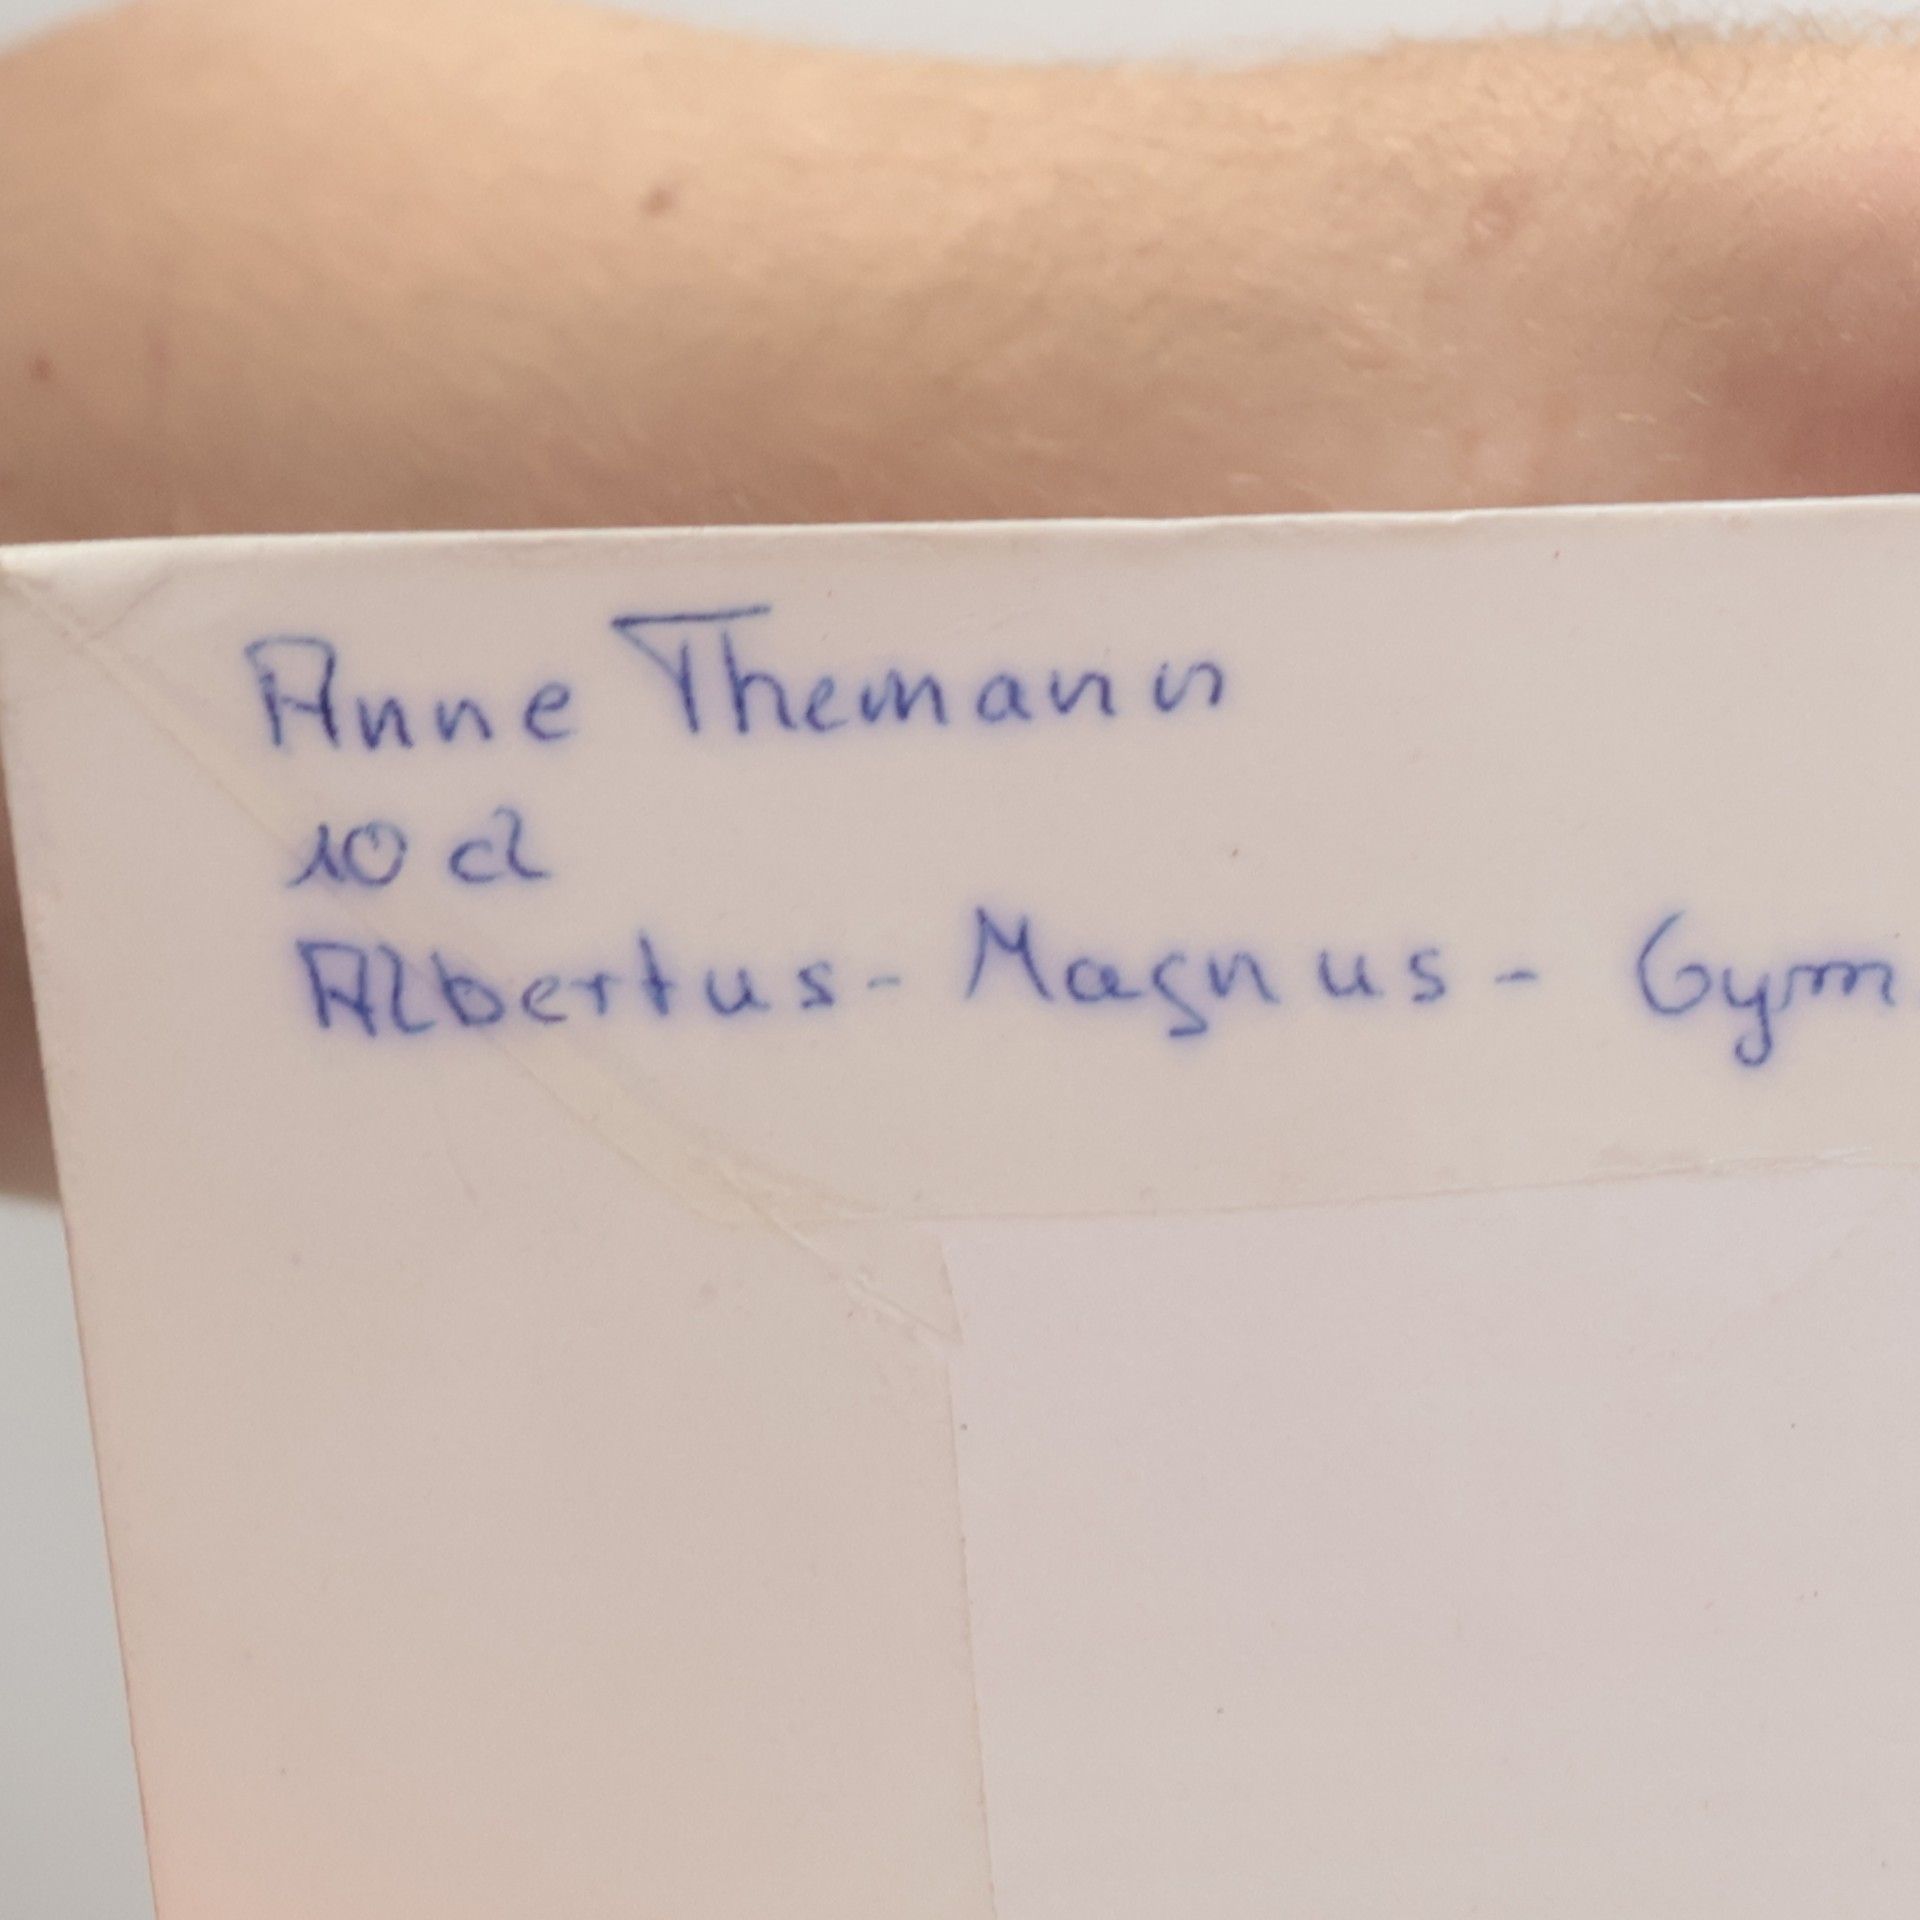 Anne Themann
10 d
Albertus-Magnus-Gym